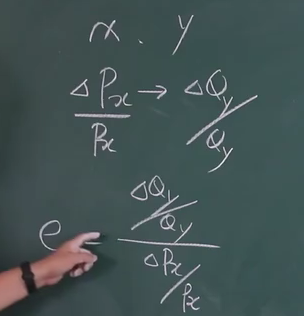 x. y
ΔPx/Px → ΔQy/Qy
e = (ΔQy/Qy)/(ΔPx/Px)